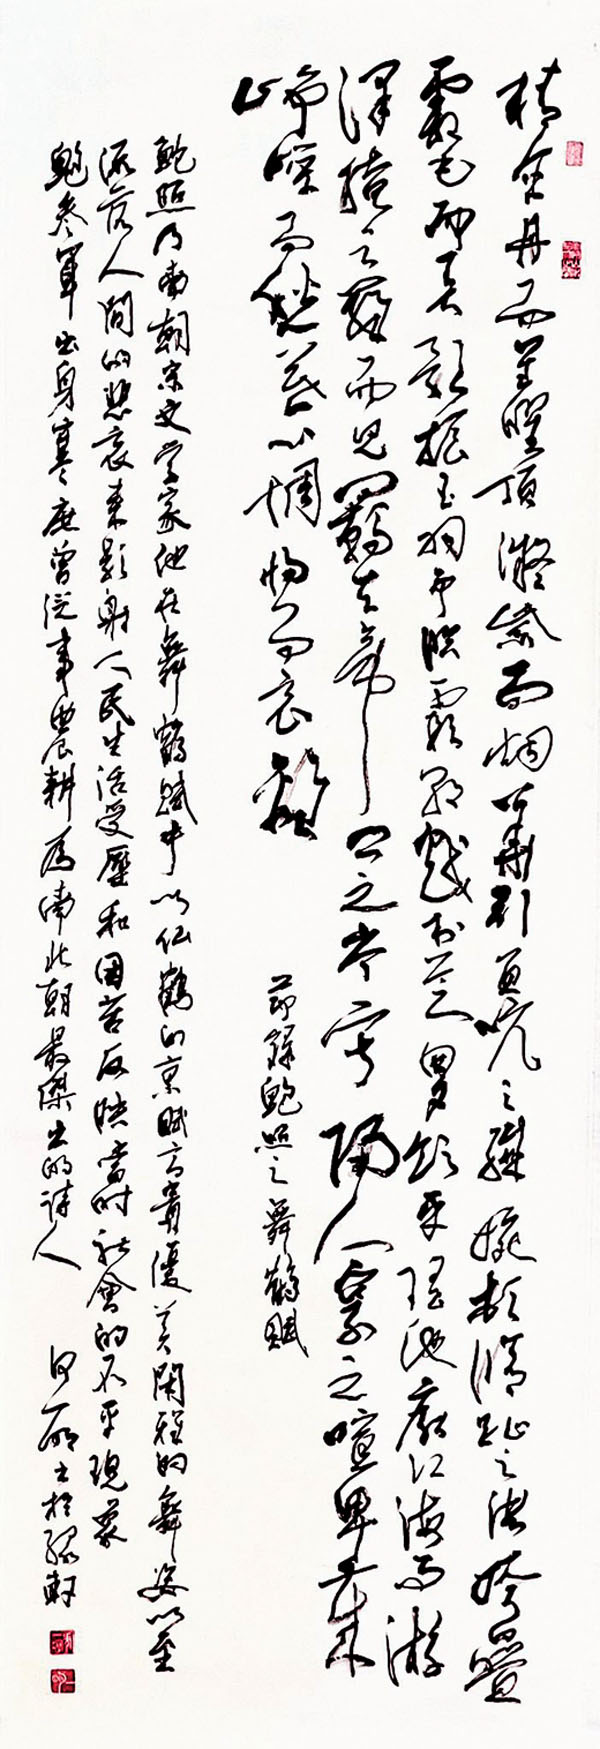 精含丹而星曜頂凝紫而烟華引員吭之纖婉頓修趾之洪姱疊
霜毛而弄影振玉羽而臨霞朝戲於芝田夕飲乎瑤池厭江海而游
澤掩雲羅而見羈去帝鄉之岑寂歸人寰之喧卑歲
崢嶸而愁暮心惆悵而哀離
節錄鮑照之舞鶴賦
鮑照乃南朝宋文学家他在舞鶴賦中以仙鶴的禀賦高貴優美閑雅的舞姿以至
流落人間的悲哀來影射人民生活受壓和困苦反映當時社會的不平現象
鮑參軍出身寒庶曾從事農耕為南北朝最傑出的詩人